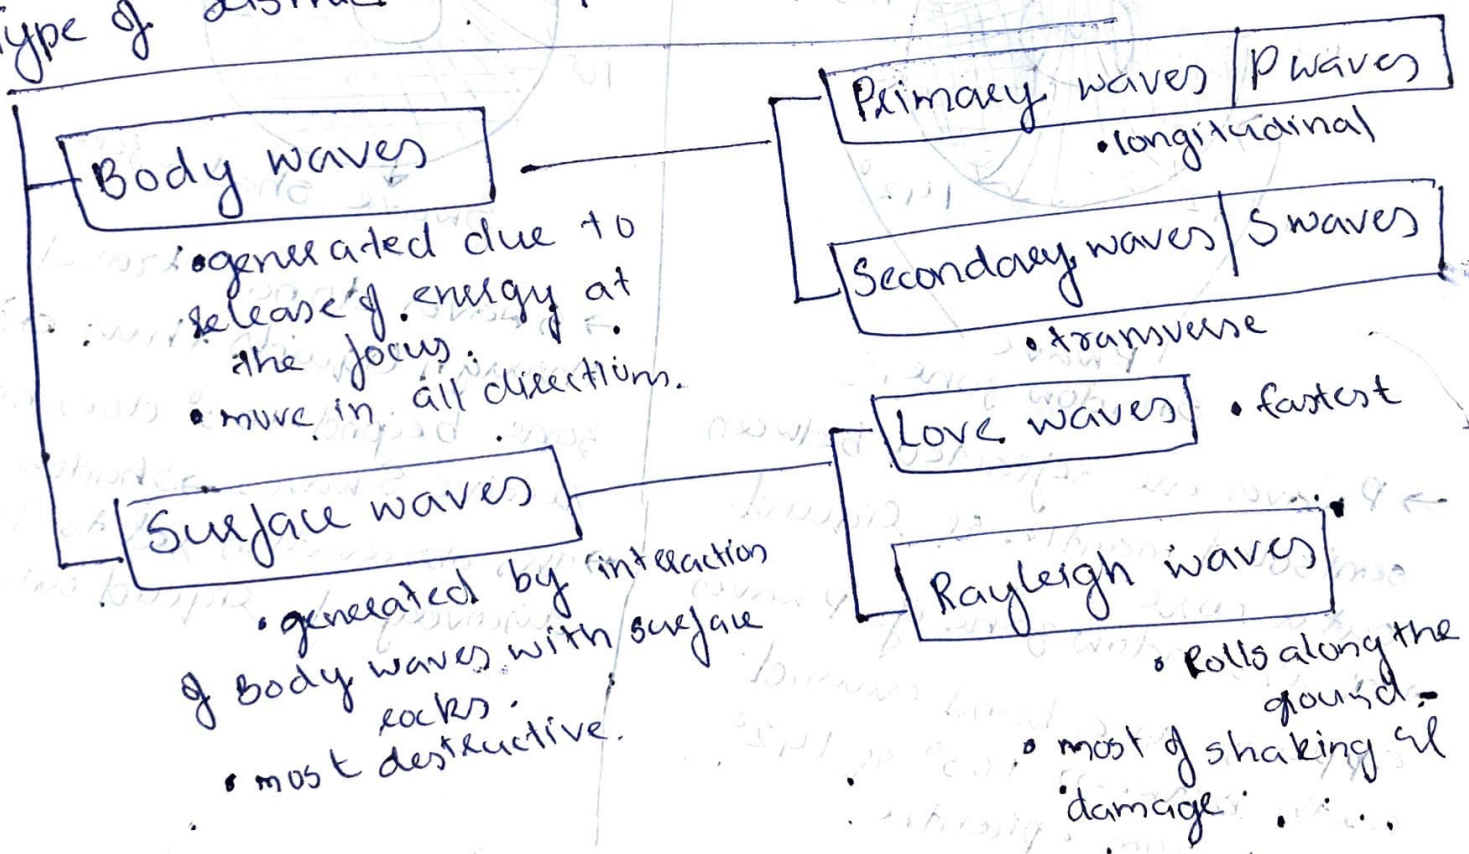 Type of
Body waves
•generated due to
release of energy at
the focus.
• move in all directions.
Surface waves
• generated by interaction
of Body waves with surface
rocks.
• most destructive.
Primary waves | P waves
•longitudinal
Secondary waves | S waves
• transverse
Love waves • fastest
Rayleigh waves
• Rolls along the
ground.
• most of shaking
damage.